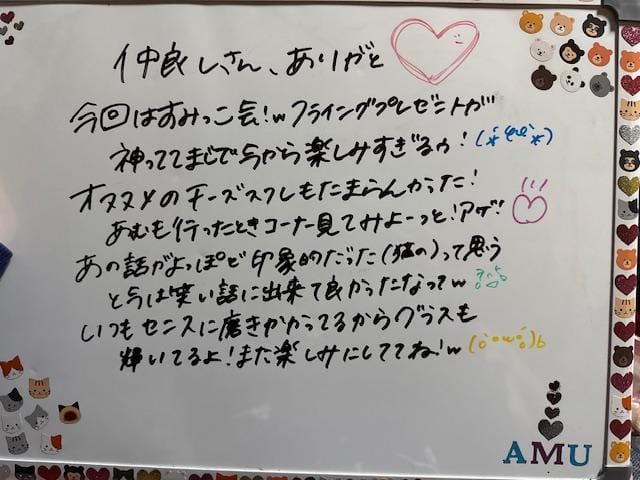 仲良しさん、ありがと
今回はすみっこ会！wフライングプレゼントが
神っててまじで今から楽しみすぎるゥ！(*´ω`*)
オススメのチーズスフレもたまらんかった！
あむも行ったときコーナー見てみよーっと！アゲ！
あの話がよっぽど印象的だった(猫の)って思う
と今は笑い話に出来て良かったなってw
いつもセンスに磨きかかってるからグラスも
輝いてるよ！また楽しみにしててね！w
AMU